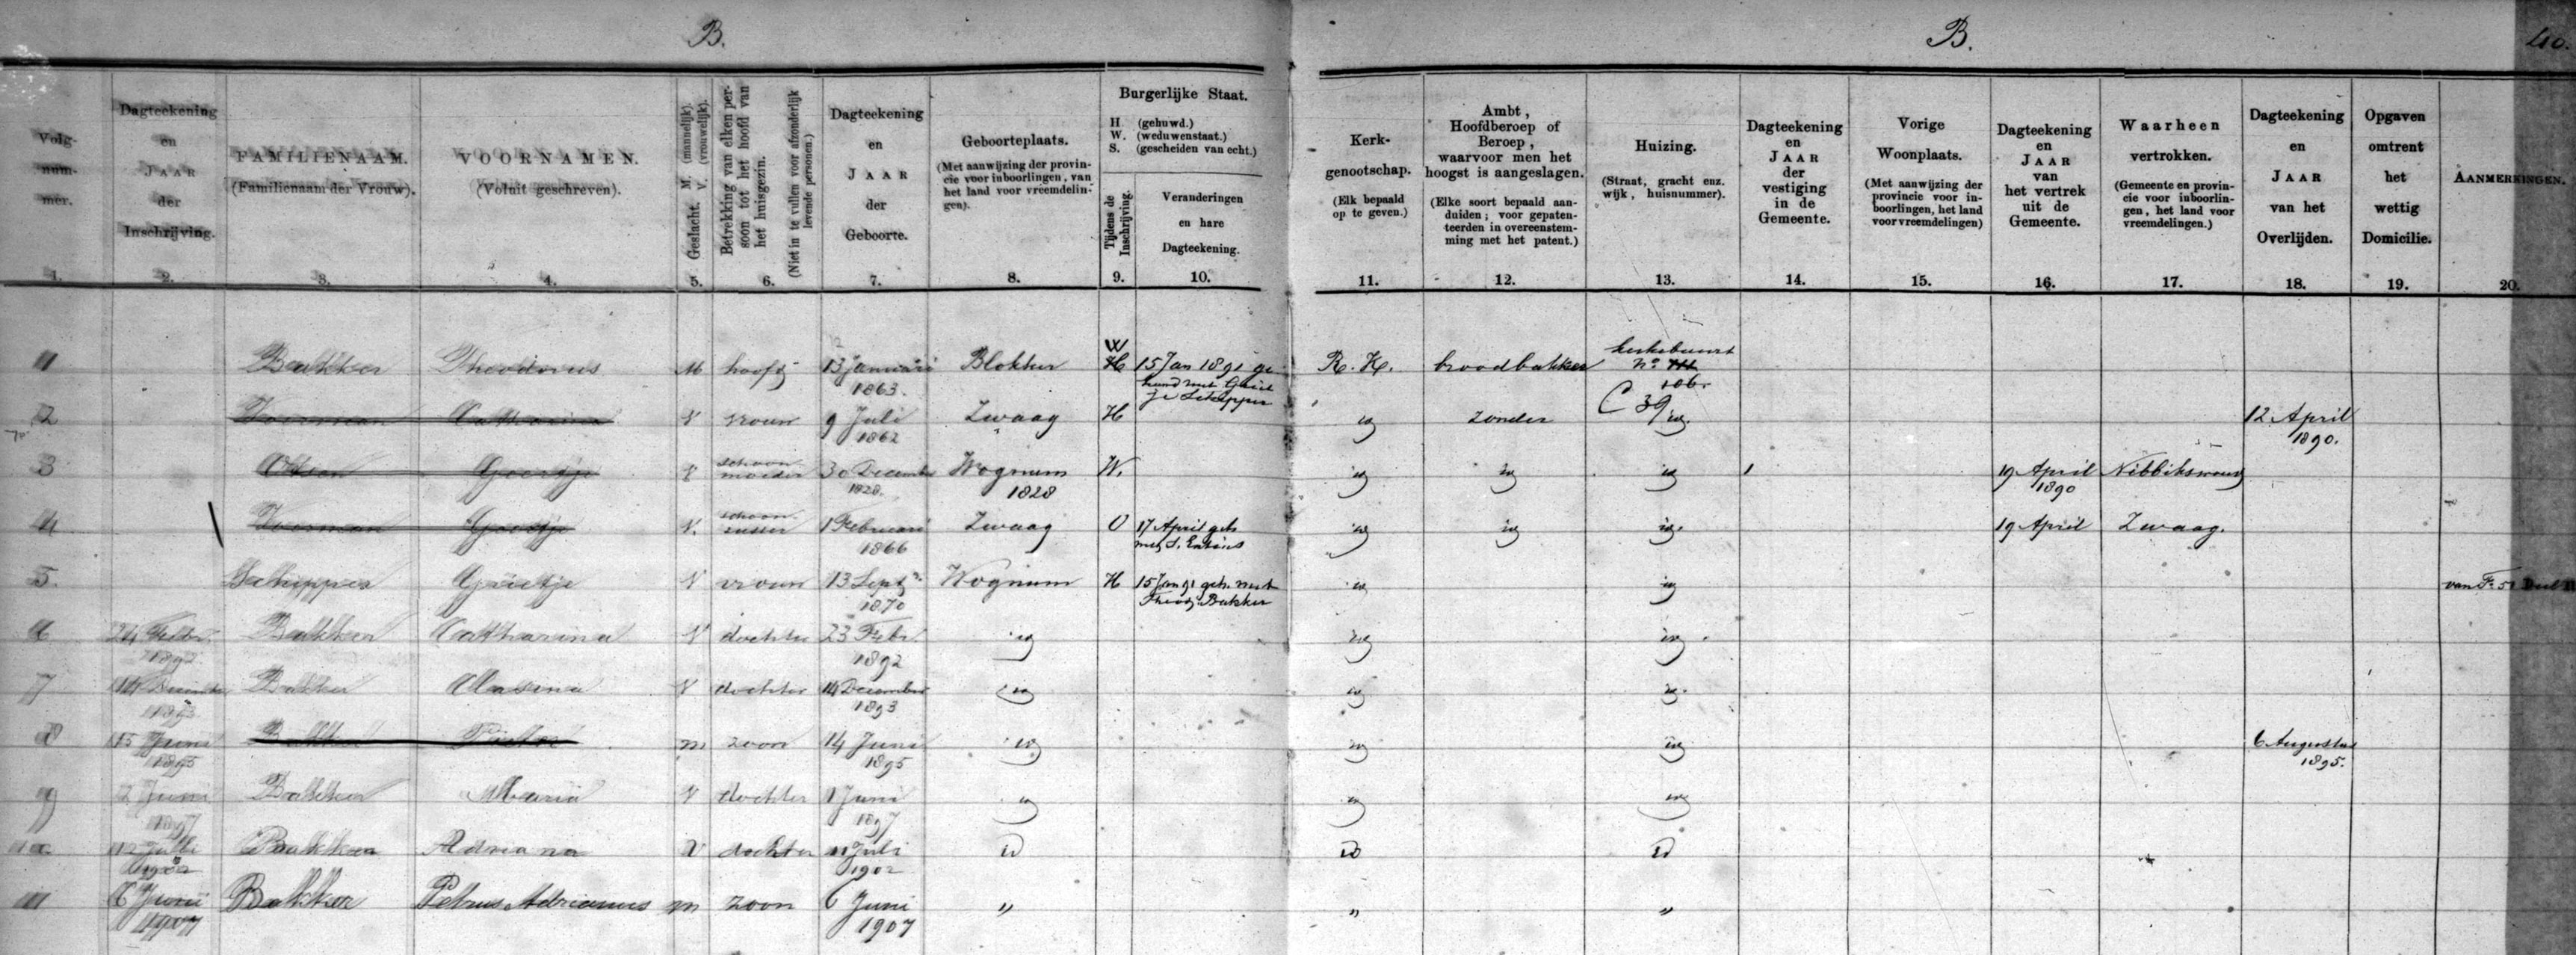 B.
B.
40.
Volg-
num-
mer.
1.
Dagteekening
en
JAAR
der
Inschrijving.
2.
FAMILIENAAM.
(Familienaam der Vrouw).
3.
VOORNAMEN.
(Voluit geschreven).
4.
Geslacht. M. (mannelijk). V. (vrouwelijk).
5.
Betrekking van elken per-
soon tot het hoofd van
het huisgezin.
(Niet in te vullen voor afzonderlijk
levende personen.)
6.
Dagteekening
en
JAAR
der
Geboorte.
7.
Geboorteplaats.
(Met aanwijzing der provin-
cie voor inboorlingen, van
het land voor vreemdelin-
gen).
8.
Burgerlijke Staat.
H. (gehuwd.)
W. (weduwenstaat.)
S. (gescheiden van echt.)
Tijdens de
Inschrijving.
9.
Veranderingen
en hare
Dagteekening.
10.
Kerk-
genootschap.
(Elk bepaald
op te geven.)
11.
Ambt,
Hoofdberoep of
Beroep,
waarvoor men het
hoogst is aangeslagen.
(Elke soort bepaald aan-
duiden; voor gepaten-
teerden in overeenstem-
ming met het patent.)
12.
Huizing.
(Straat, gracht enz.
wijk, huisnummer).
13.
Dagteekening
en
JAAR
der
vestiging
in de
Gemeente.
14.
Vorige
Woonplaats.
(Met aanwijzing der
provincie voor in-
boorlingen, het land
voor vreemdelingen)
15.
Dagteekening
en
JAAR
van
het vertrek
uit de
Gemeente.
16.
Waarheen
vertrokken.
(Gemeente en provin-
cie voor inboorlin-
gen, het land voor
vreemdelingen.)
17.
Dagteekening
en
JAAR
van het
Overlijden.
18.
Opgaven
omtrent
het
wettig
Domicilie.
19.
AANMERKINGEN.
20.
1 Bakker Theodorus M hoofd 13 Januari 1863. Blokker W H 15 Jan 1891 ge- R. K. broodbakker kerkebuurt No 106. C 39
huwd met Grietje Schipper
2 Veerman Catharina V vrouw 9 Juli 1862 Zwaag H id zonder id. 12 April 1890.
3 Goertje V schoonmoeder 30 December 1828. Wognum 1828 W. id id id 19 April 1890 Nibbikswoud
4 Veerman Goertje V. schoonzuster 1 Februari 1866 Zwaag O 17 April geh met S. id id id. 19 April Zwaag.
5. Schipper Grietje V vrouw 13 Sept. 1870 Wognum H 15 Jan 91 geh. met Theod. Bakker id id van Fo 51 Deel II
6 24 Febr. 1892 Bakker Catharina V dochter 23 Febr. 1892 id id id.
7 14 December 1893 Bakker V dochter 14 December 1893 id id id.
8 15 Juni 1895 Bakker Pieter m zoon 14 Juni 1895 id id id 6 Augustus 1895.
9 2 Juni 1897 Bakker Maria V dochter 1 Juni 1897 id id id
10 12 Juli 1902 Bakker Adriana V dochter 11 Juli 1902 id id id
11 6 Juni 1907 Bakker Petrus Adrianus m zoon 6 Juni 1907 " " "